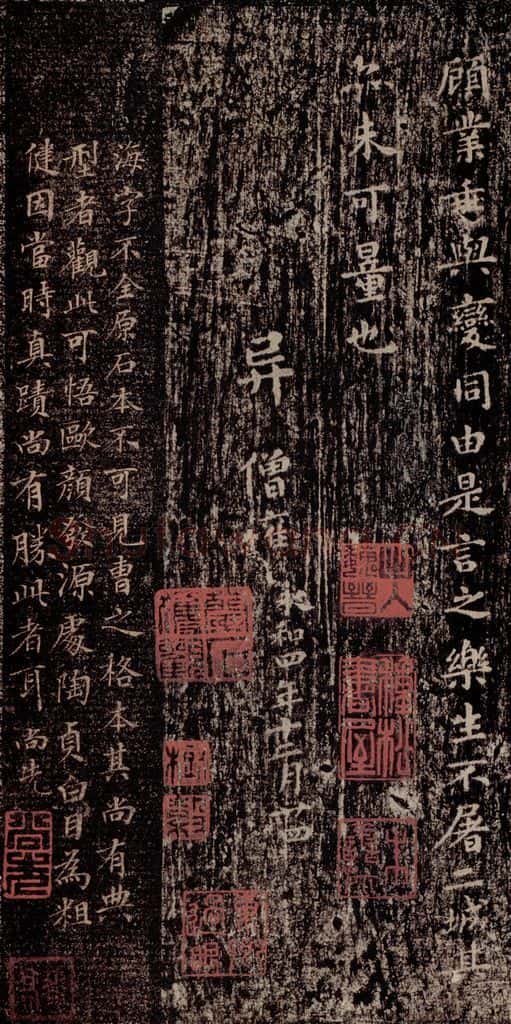 顧業乖與變同由是言之樂生不屠二城其
亦未可量也
异 僧權
永和四年十二月
海字不全原石本不可見曹之格本其尚有典
型者觀此可悟歐顏發源處陶貞白目為粗
健因當時真蹟尚有勝此者耳尚先